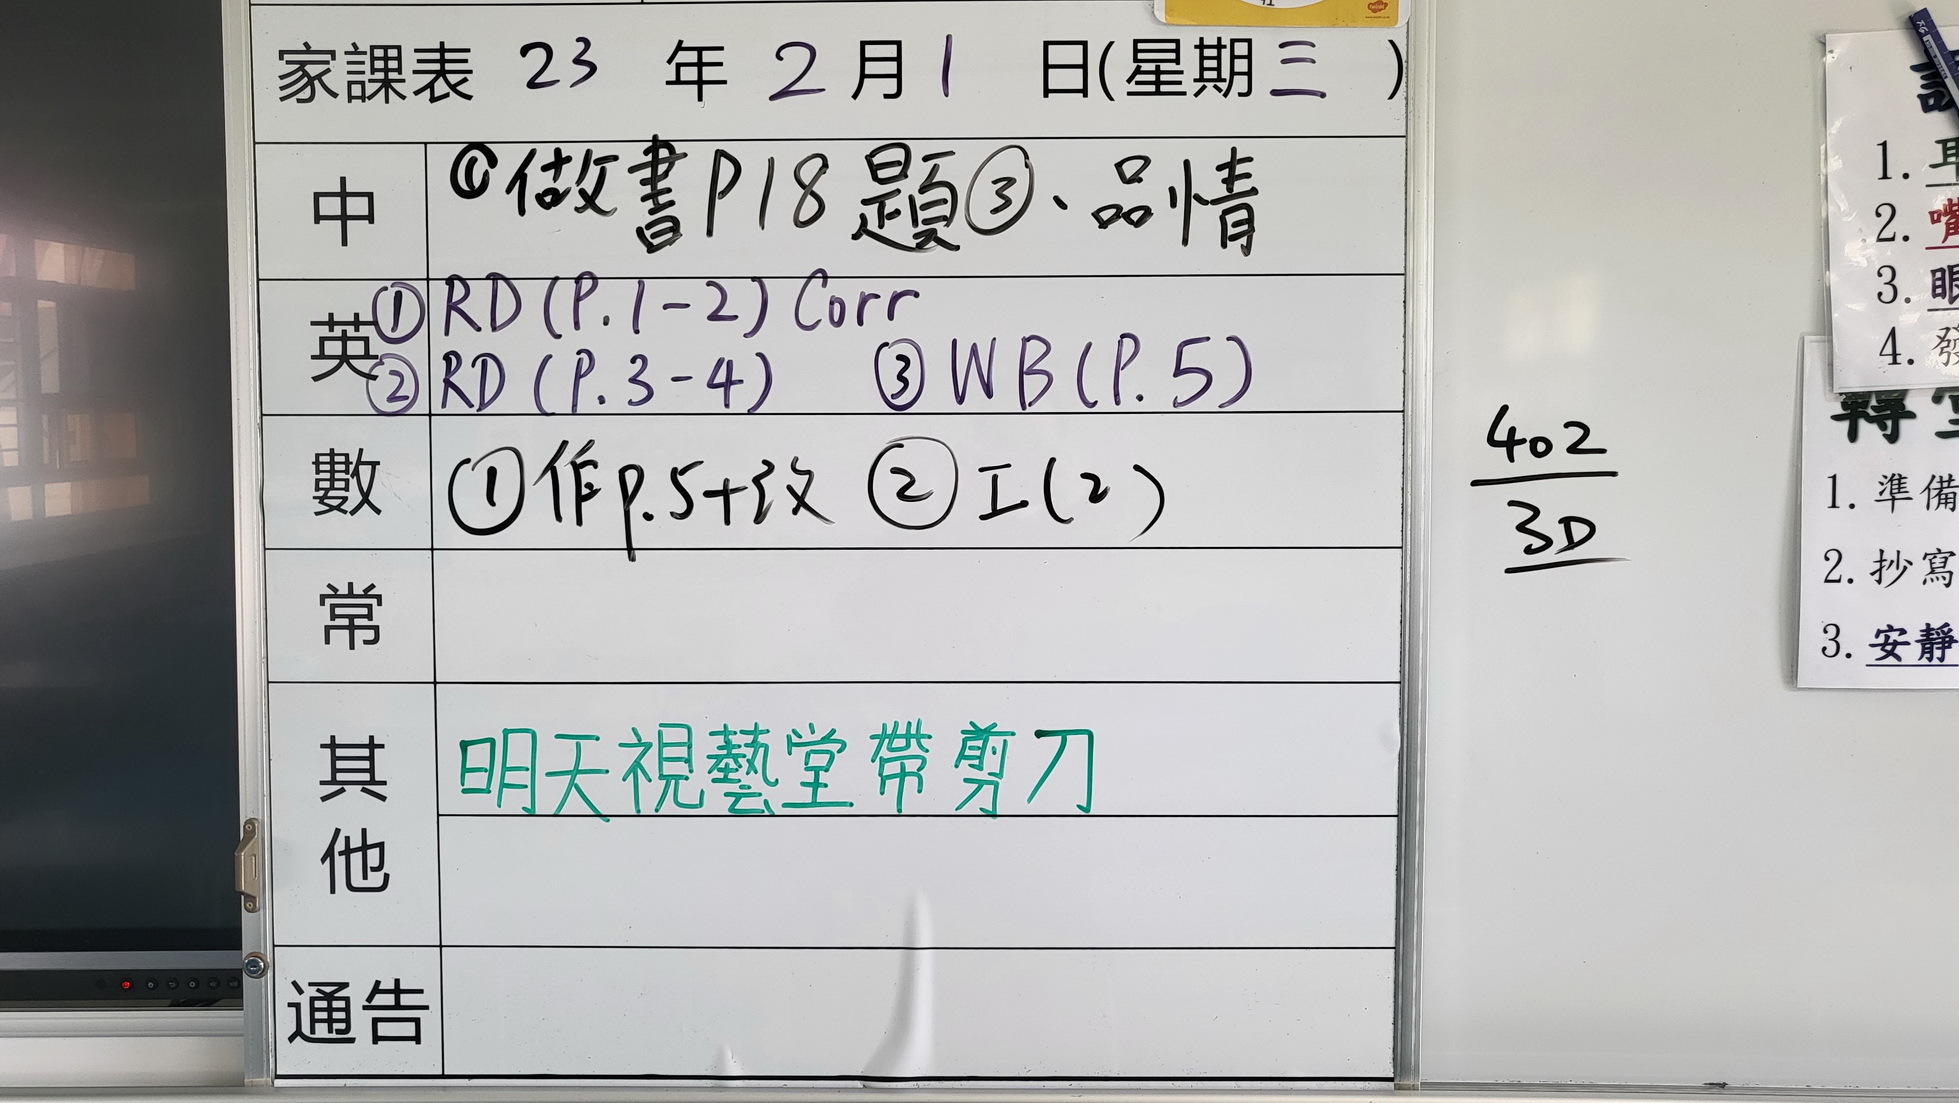 家課表 23 年 2 月 1 日(星期三 )
中 ①做書P18題③、品情
英 ①RD(P.1-2) Corr
②RD(P.3-4) ③WB(P.5)
數 ①作p.5+改 ②工(2)
常
其他 明天視藝堂帶剪刀
通告
402
3D
1.
2. 嘴
3. 眼
4. 發
轉堂
1. 準備
2. 抄寫
3. 安靜